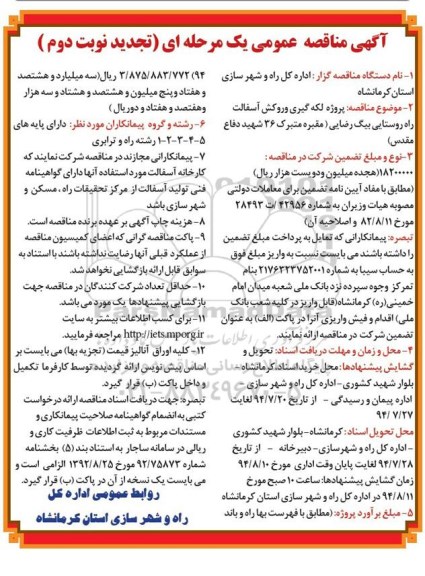 آگهی مناقصه عمومی یک مرحله ای (تجدید نوبت دوم )
۱- نام دستگاه مناقصه گزار : اداره کل راه و شهر سازی
استان کرمانشاه
۲-موضوع مناقصه: پروژه لکه گیری وروکش آسفالت
راه روستایی بیگ رضایی (مقبره متبرک ۳۶ شهید دفاع
مقدس)
۳-نوع و مبلغ تضمین شرکت در مناقصه :
۱۸۲۰۰۰۰۰(هجده میلیون ودویست هزار ریال)
(مطابق با مفاد آیین نامه تضمین برای معاملات دولتی
مصوبه هیات وزیران به شماره ۴۲۹۵۶ /ت ۲۸۴۹۳
مورخ ۸۲/۸/۱۱ و اصلاحیه آن)
تبصره: پیمانکارانی که تمایل به پرداخت مبلغ تضمین
را داشته باشند می بایست نسبت به واریز مبلغ فوق
به حساب سیبا به شماره ۲۱۷۶۳۲۳۷۵۲۰۰۱ بنام
تمرکز وجوه سپرده نزد بانک ملی شعبه میدان امام
خمینی(ره) کرمانشاه(قابل واریز در کلیه شعب بانک
ملی) اقدام و فیش واریزی آنرا در پاکت (الف) به عنوان
تضمین شرکت در مناقصه ارائه نمایند.
۴- محل و زمان و مهلت دریافت اسناد: تحویل و
گشایش پیشنهادها: محل خرید اسناد: کرمانشاه -
بلوار شهید کشوری- اداره کل راه و شهر سازی
اداره پیمان و رسیدگی - از تاریخ ۹۴/۷/۲۰ لغایت
۹۴/۷/۲۷
محل تحویل اسناد : کرمانشاه-بلوار شهید کشوری
- اداره کل راه و شهرسازی-دبیرخانه - از تاریخ
۹۴/۷/۲۸ لغایت پایان وقت اداری مورخ ۹۴/۸/۱۰
زمان گشایش پیشنهادها: ساعت ۱۰ صبح مورخ
۹۴/۸/۱۱ در اداره کل راه و شهر سازی استان کرمانشاه
۵- مبلغ برآورد پروژه: (مطابق با فهرست بها راه و باند
۹۴) ۳/۸۷۵/۸۸۳/۷۷۲ ریال(سه میلیارد و هشتصد
و هفتاد و پنج میلیون و هشتصد و هشتاد و سه هزار
وهفتصد و هفتاد و دوریال )
۶- رشته و گروه پیمانکاران مورد نظر : دارای پایه های
۵-۴-۳-۲-۱ رشته راه و ترابری
۷- پیمانکارانی مجازند در مناقصه شرکت نمایند که
کارخانه آسفالت مورد استفاده آنها دارای گواهینامه
فنی تولید آسفالت از مرکز تحقیقات راه ، مسکن و
شهر سازی باشد
۸- هزینه چاپ آگهی بر عهده برنده مناقصه است.
۹- پاکت مناقصه گرانی که اعضای کمیسیون مناقصه
از عملکرد قبلی آنها رضایت نداشته باشند با استناد به
سوابق قابل ارائه بازگشایی نخواهد شد.
۱۰- حداقل تعداد شرکت کنندگان در مناقصه جهت
بازگشایی پیشنهادها یک مورد می باشد.
۱۱- برای کسب اطلاعات بیشتر به سایت
http://iets.mporg.ir مراجعه فرمایید.
۱۲-کلیه اوراق آنالیز قیمت (تجزیه بها) می بایست بر
اساس پیش نویس ارائه گردیده توسط کارفرما تکمیل
و داخل پاکت (ب) قرار گیرد.
تبصره: جهت دریافت اسناد مناقصه ارائه درخواست
کتبی به انضمام گواهینامه صلاحیت پیمانکاری و
مستندات مربوط به ثبت اطلاعات ظرفیت کاری و
ریالی در سامانه ساجار به استناد بند (۵) بخشنامه
شماره ۹۲/۷۵۸۷۳ مورخ ۱۳۹۲/۸/۲۵ الزامی است و
می بایست یک نسخه از آن در پاکت (ب) قرار گیرد.
روابط عمومی اداره کل
راه و شهر سازی استان کرمانشاه